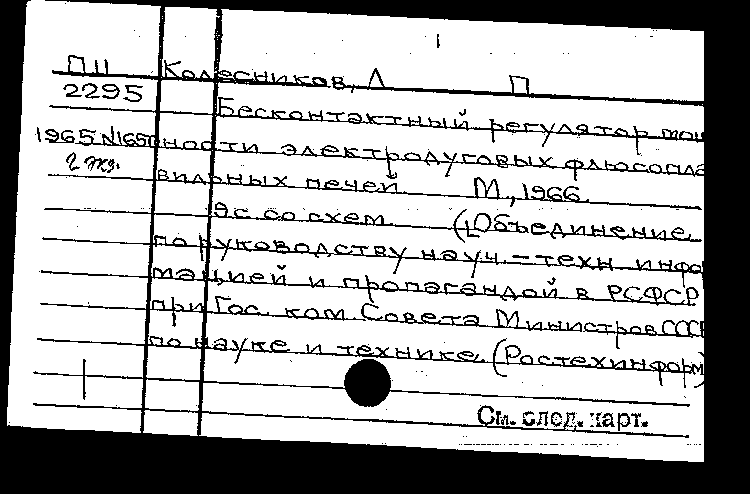 ПII Колесников, Л П
2295 Бесконтактный регулятор мощ
1965 №1650 ности электродуговых флюсопла
2 экз. вильных печей М., 1966
9с. со схем. (Объединение
по руководству науч.-техн. инфор
мацией и пропагандой в РСФСР
при Гос. ком. Совета Министров СССР
по науке и технике. (Ростехинформ)
См. след. карт.